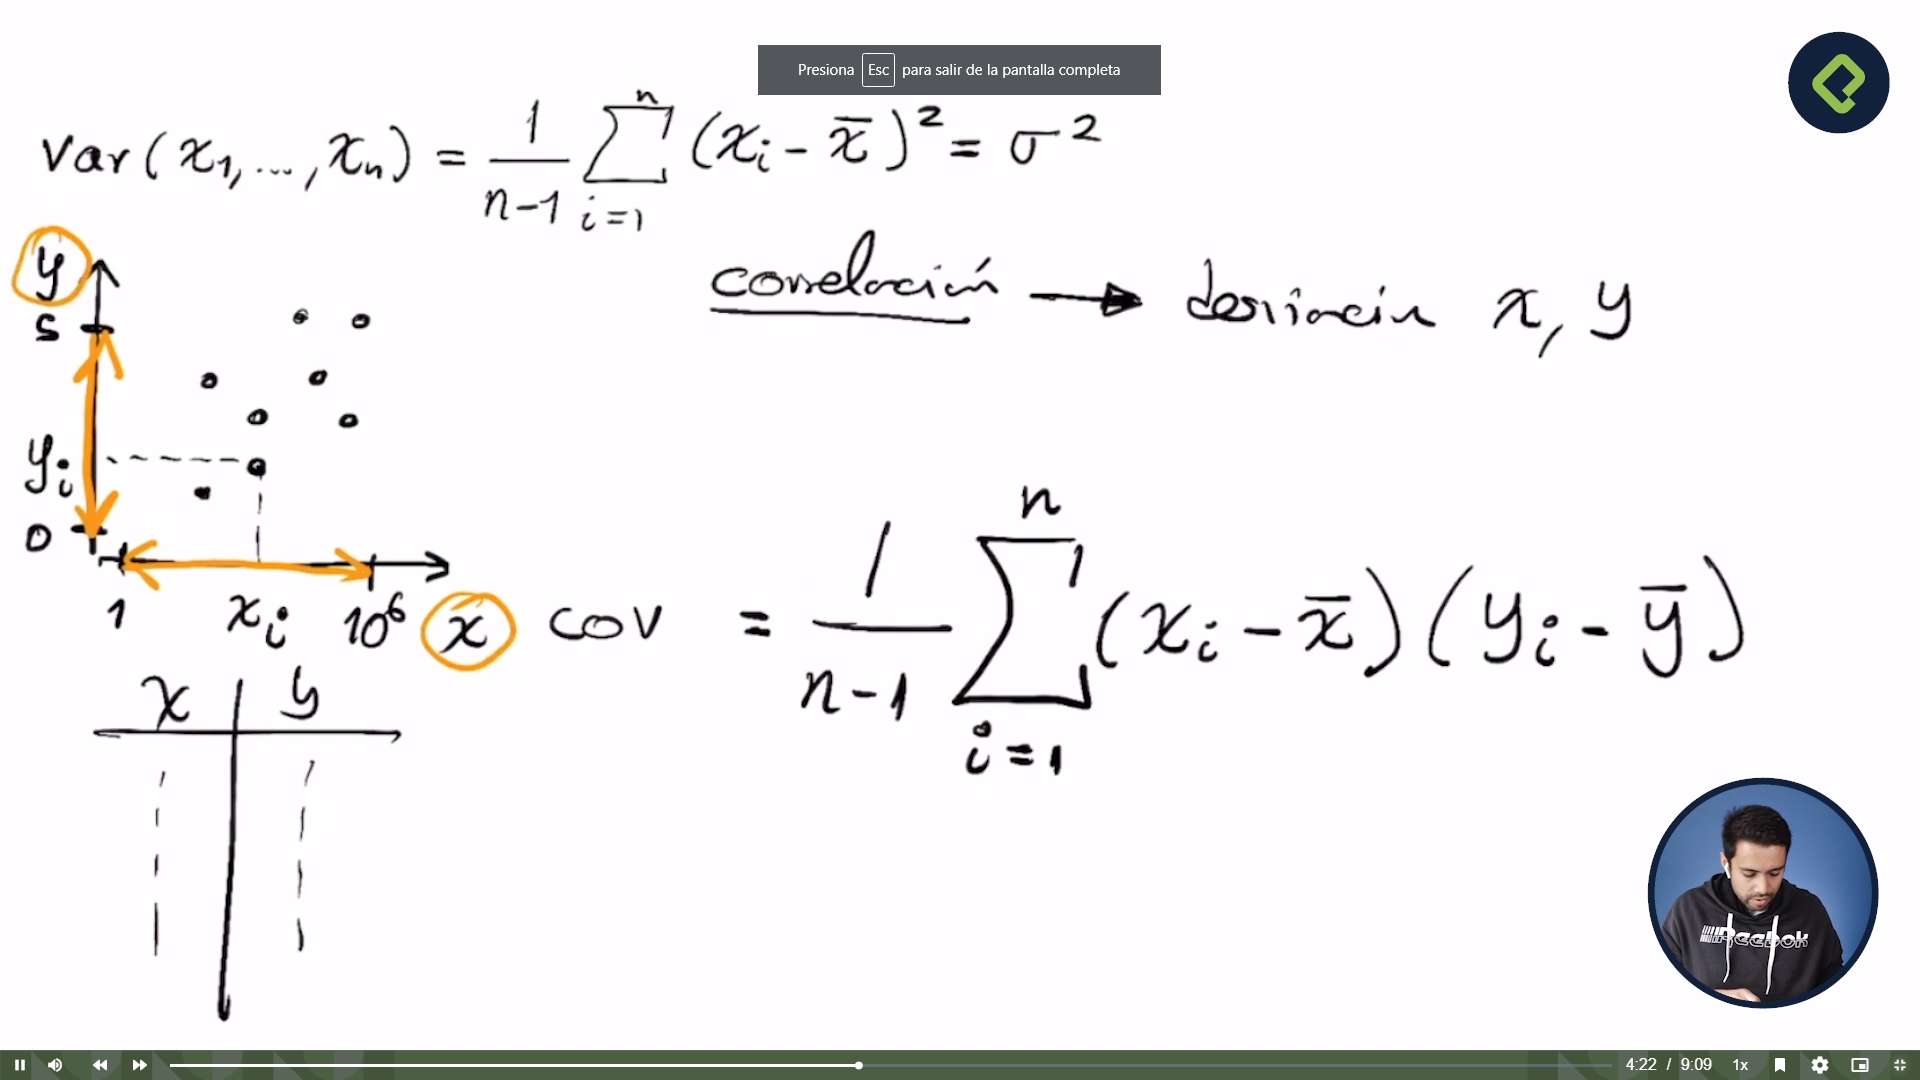 Presiona Esc para salir de la pantalla completa
var(x₁,...,xₙ) = 1/(n-1) Σᵢ₌₁ⁿ (xᵢ - x̄)² = σ²
correlación → desviación x, y
y
5
yᵢ
0
1 xᵢ 10⁶ x
cov = 1/(n-1) Σᵢ₌₁ⁿ (xᵢ - x̄)(yᵢ - ȳ)
x y
Reebok
4:22 / 9:09 1x